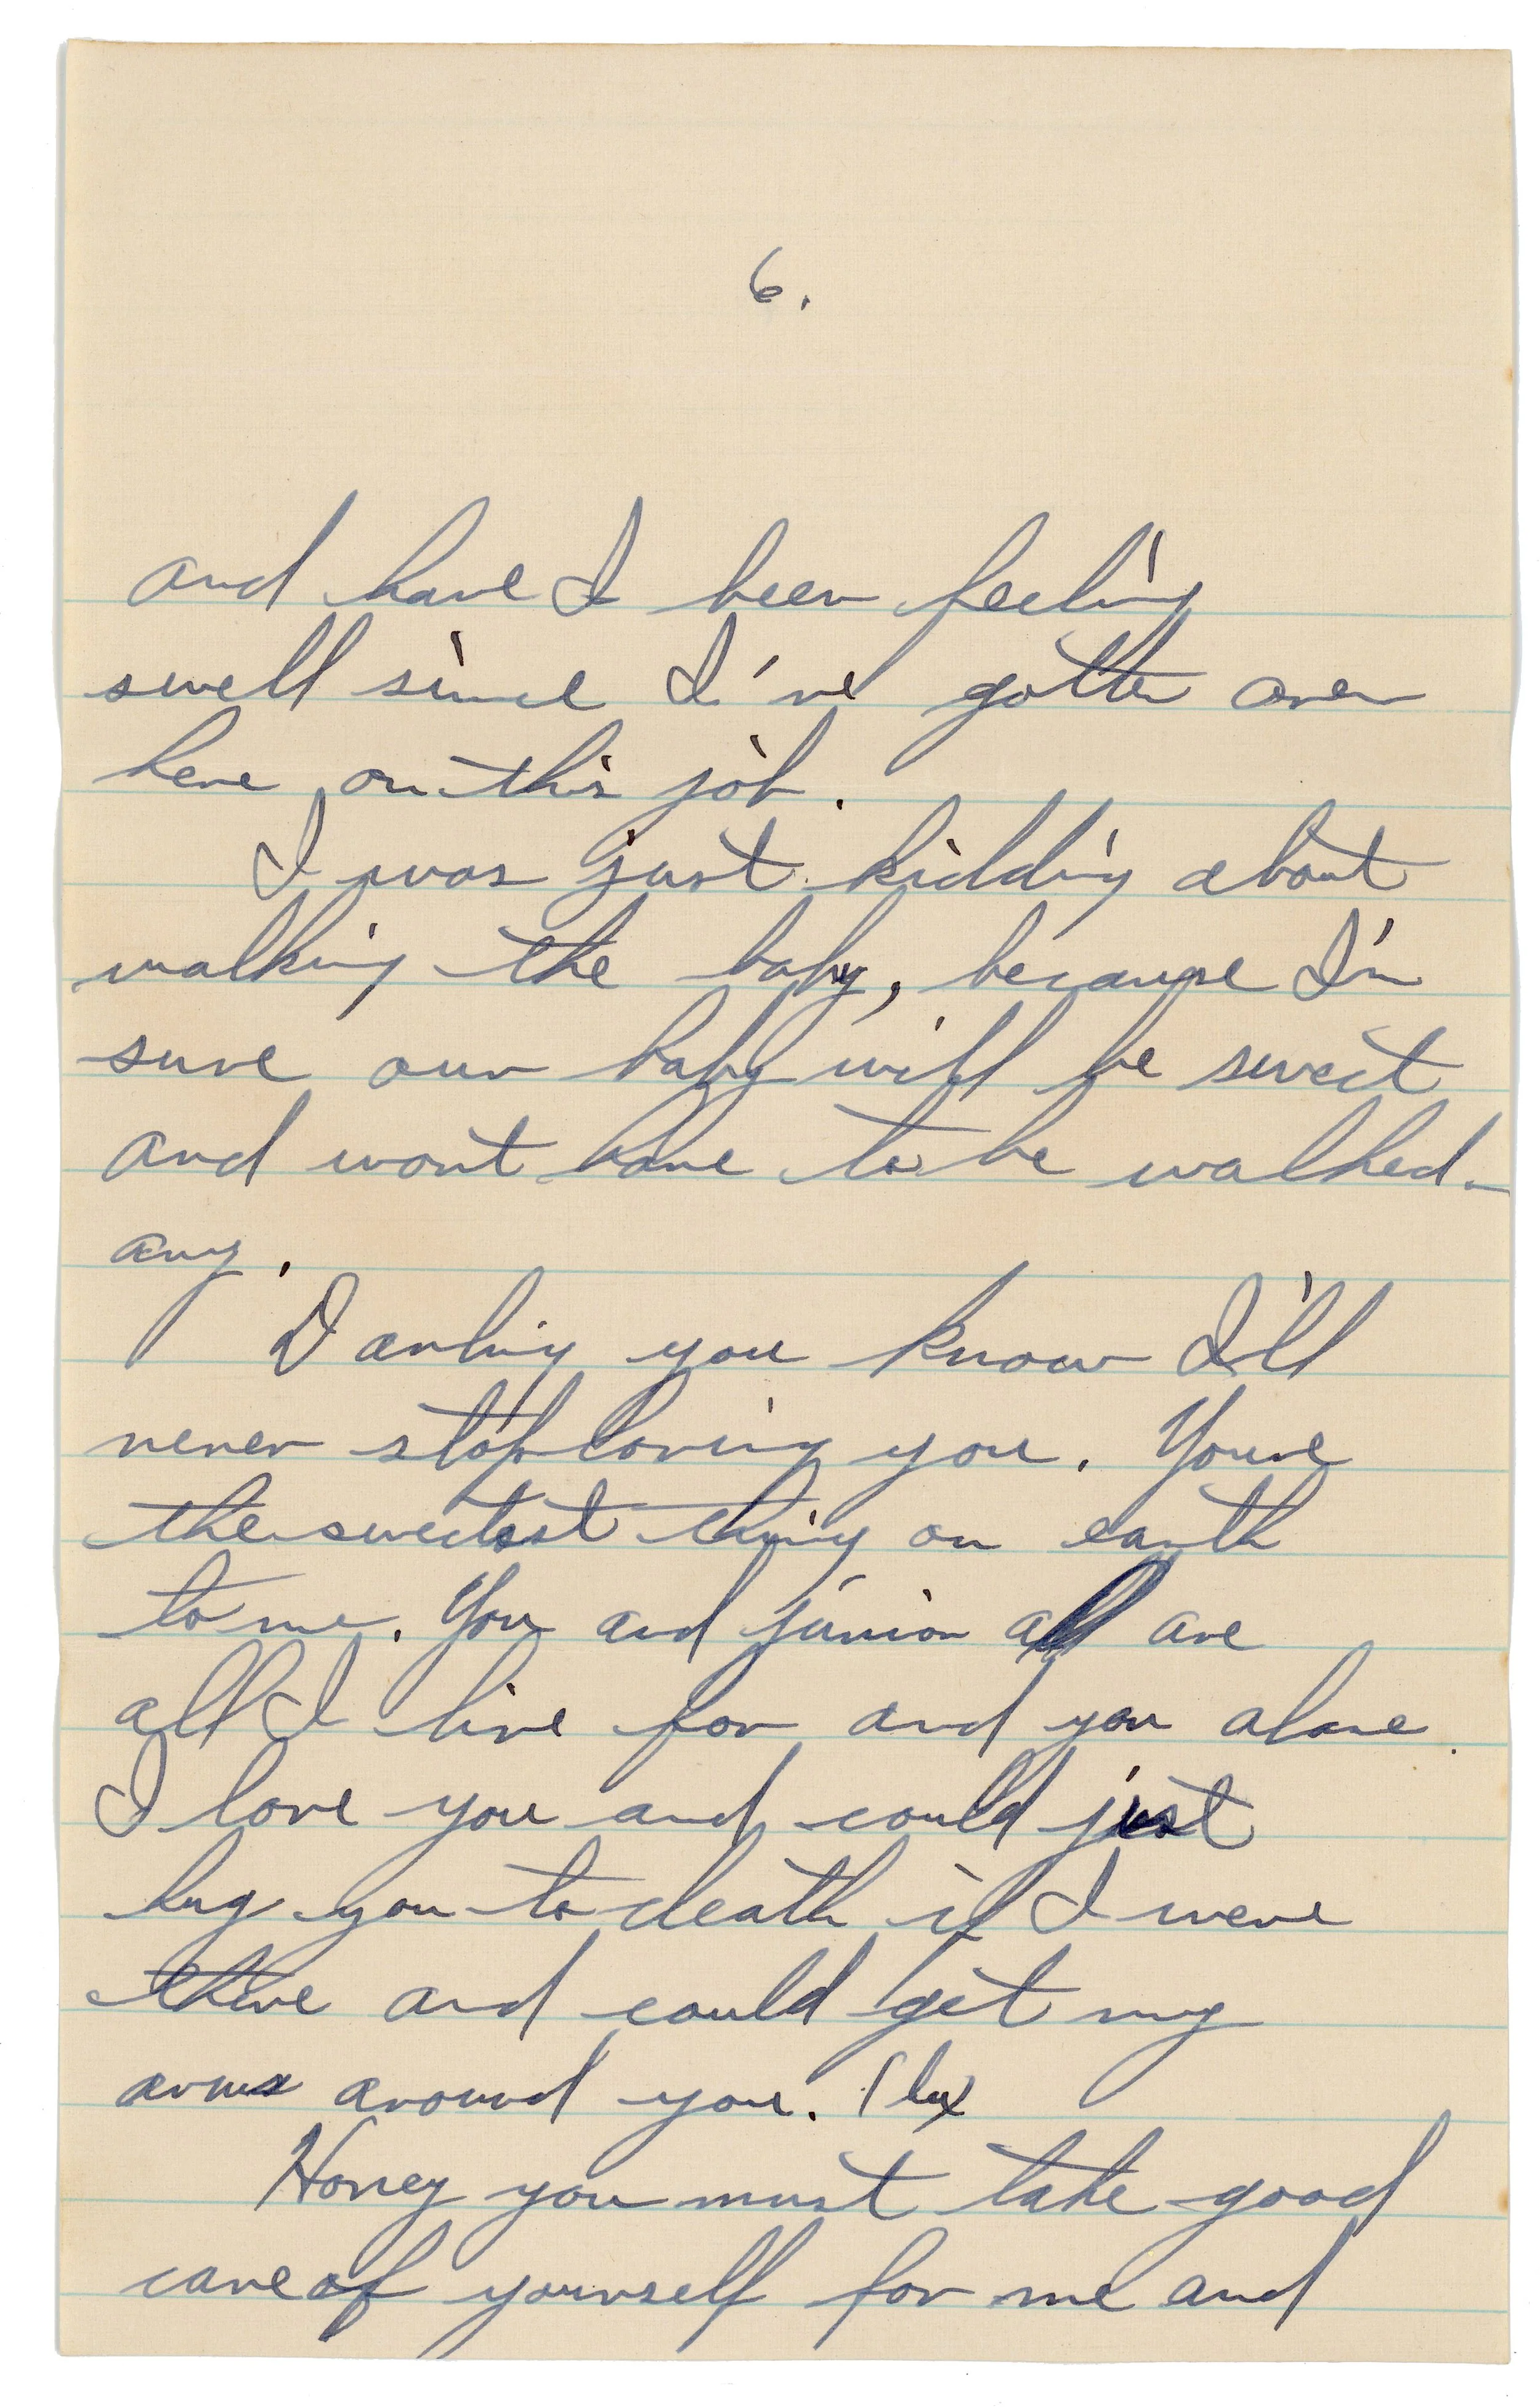 6.
and have I been feeling
swell since I've gotten over
here on this job.
I was just kidding about
walking the baby, because I'm
sure our baby will be sweet
and wont have to be walked
any.
Darling you know I'll
never stop loving you. Youre
the sweetest thing on earth
to me. You and junior all are
all I live for and you alone.
I love you and could just
hug you to death if I were
there and could get my
arms around you.
Honey you must take good
care of yourself for me and